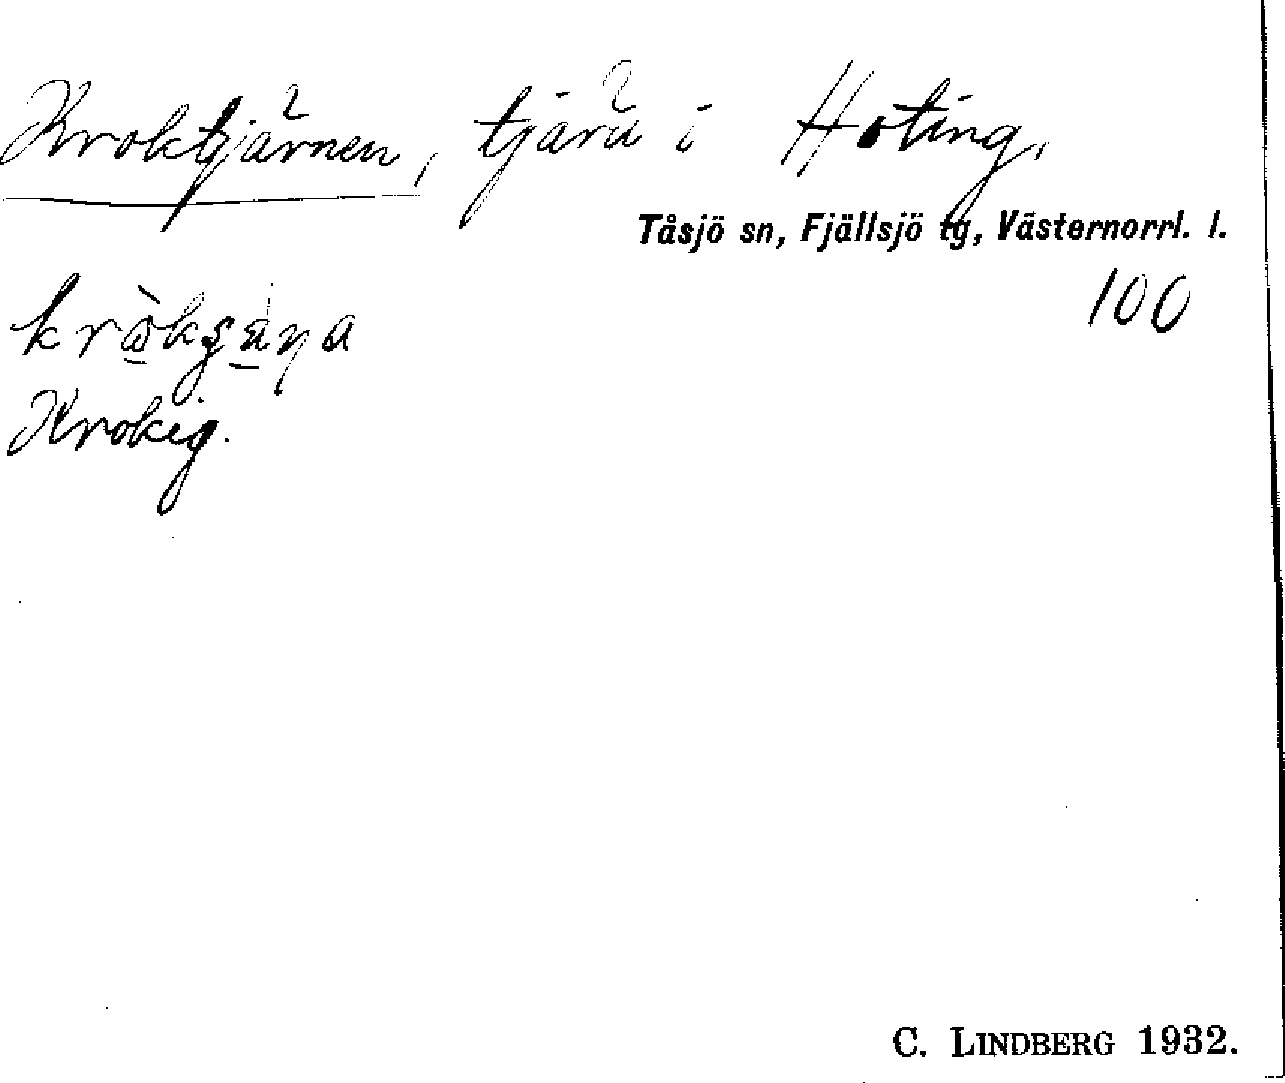 Kroktjärnen, tjärn i Hoting,
Tåsjö sn, Fjällsjö tg, Västernorrl. l.
100
Krokig.
C. LINDBERG 1932.